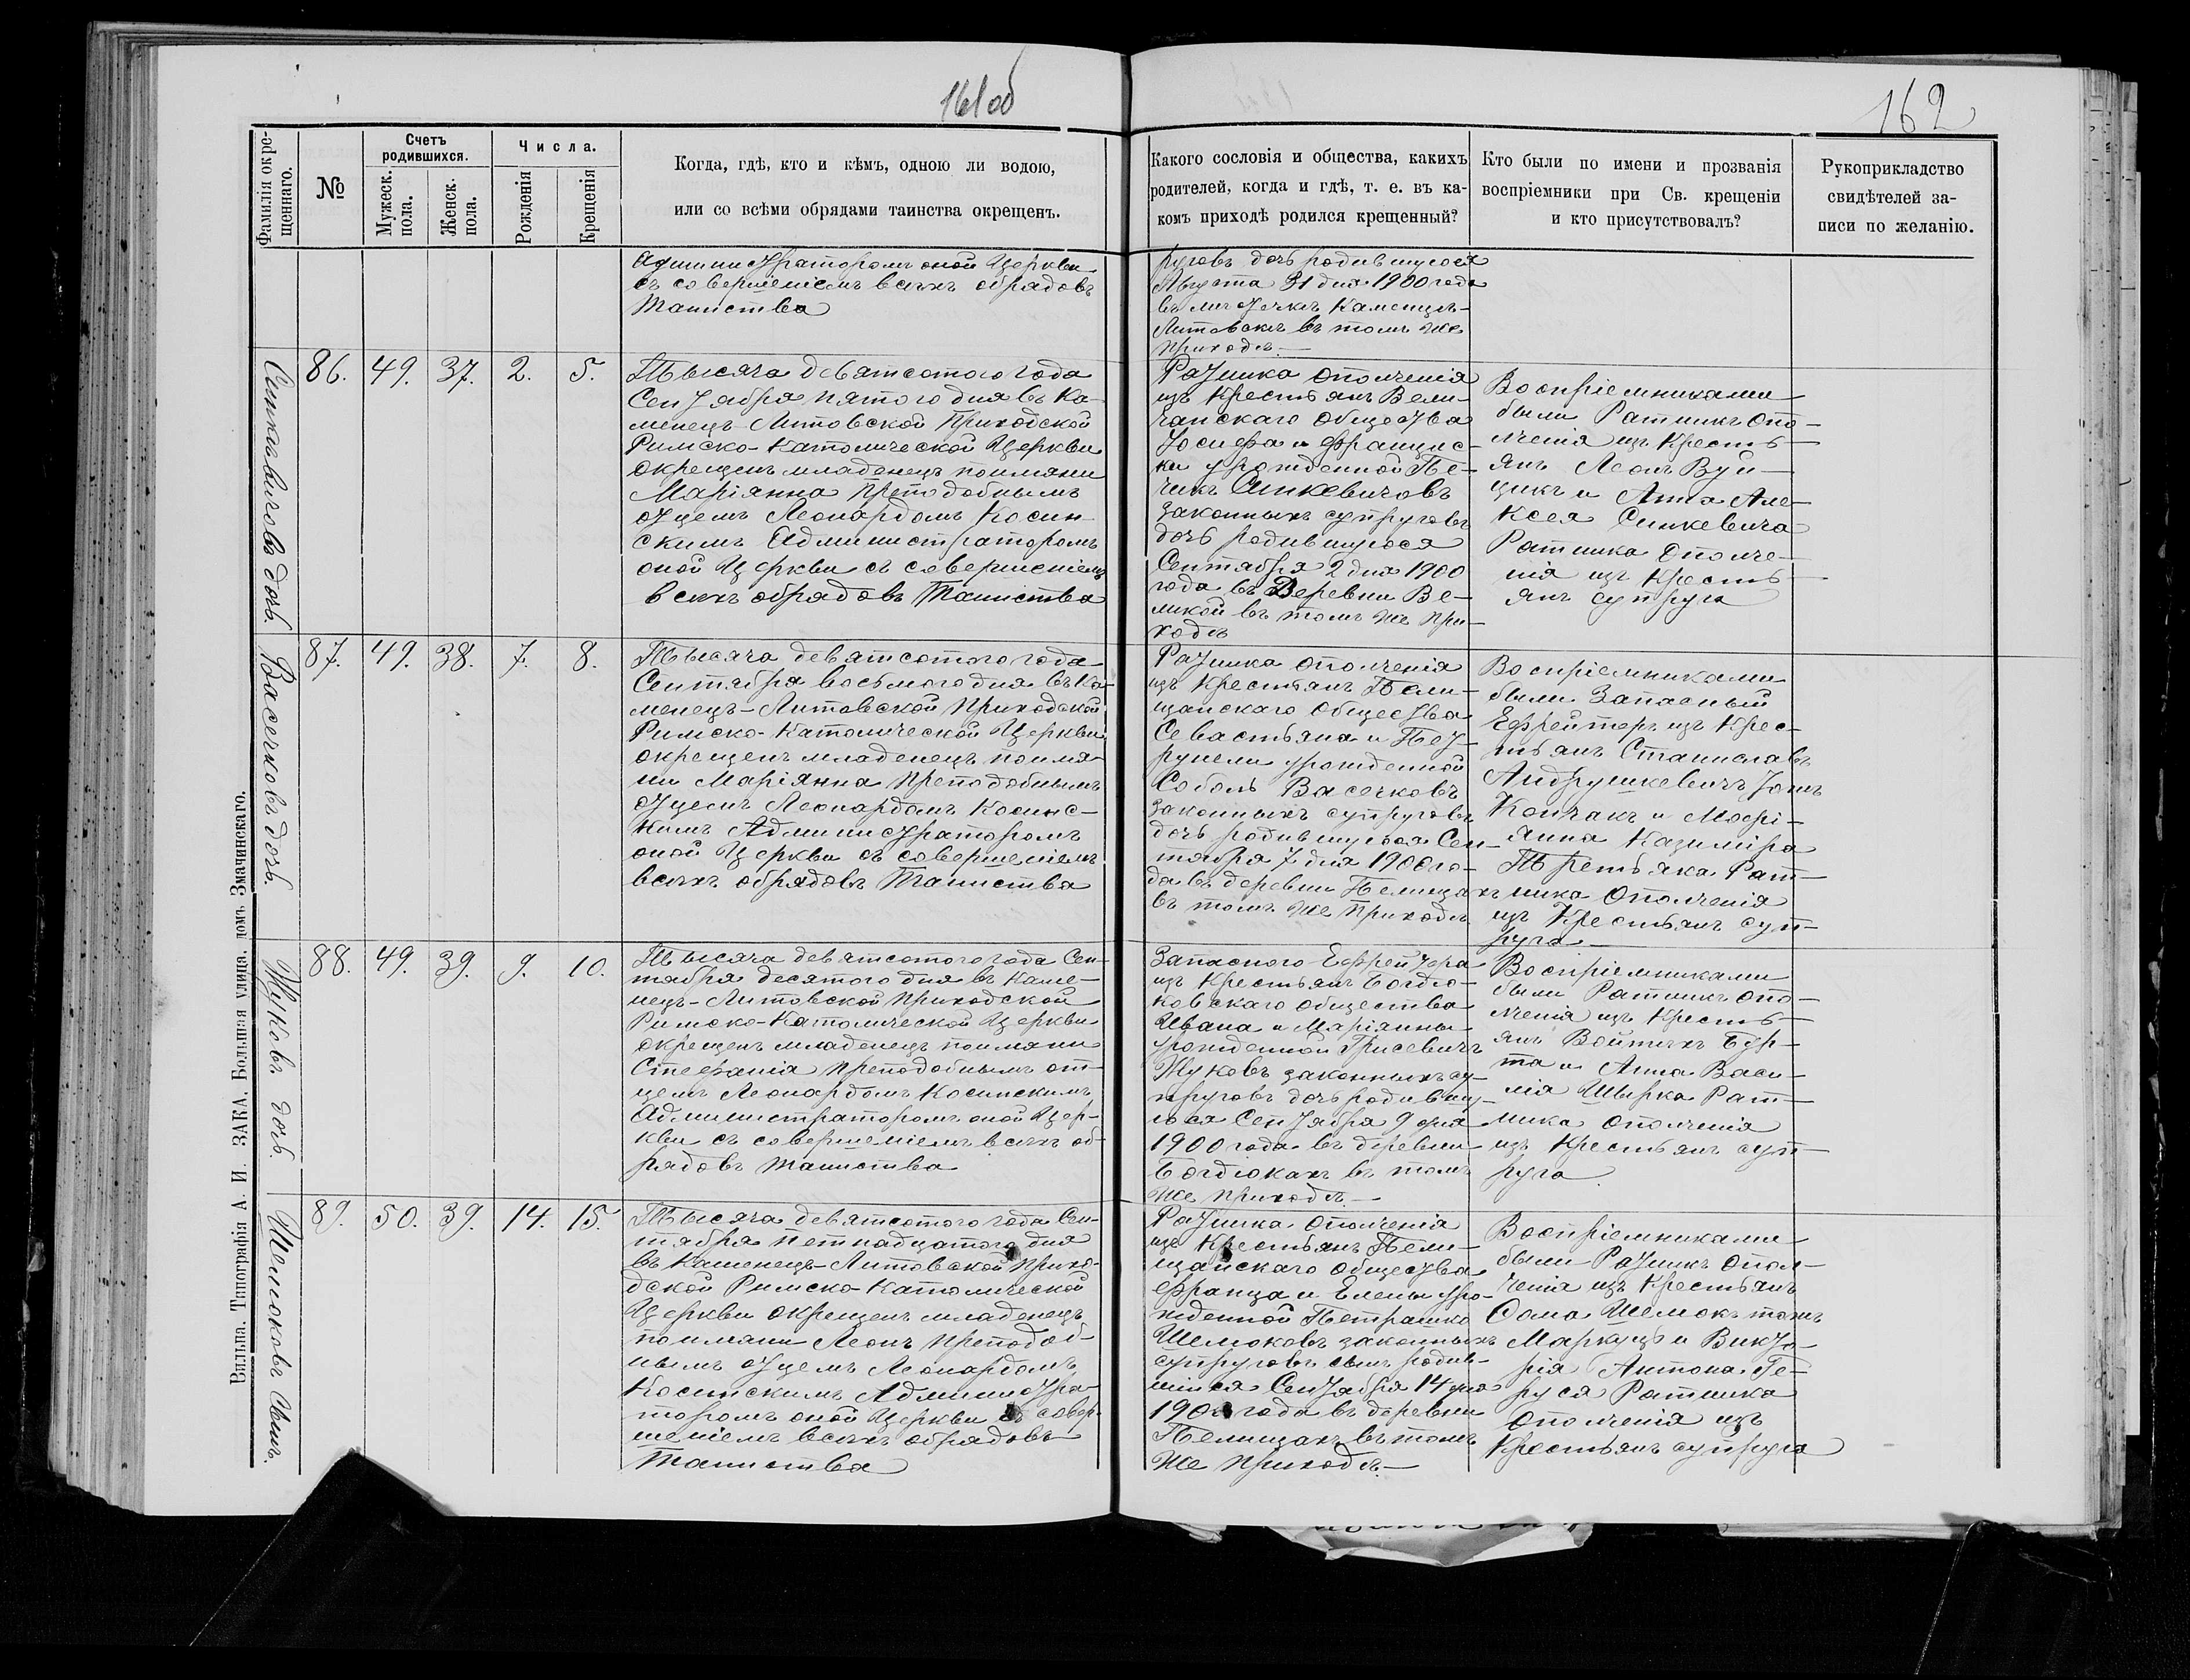 161об
162
Фамилія окре-
щеннаго.
№
Счетъ
родившихся.
Мужеск.
пола.
Женск.
пола.
Числа.
Рожденія
Крещенія
Когда, гдѣ, кто и кѣмъ, одною ли водою,
или со всѣми обрядами таинства окрещенъ.
Какого сословія и общества, какихъ
родителей, когда и гдѣ, т. е. въ ка-
комъ приходѣ родился крещенный?
Кто были по имени и прозванія
воспріемники при Св. крещеніи
и кто присутствовалъ?
Рукоприкладство
свидѣтелей за-
писи по желанію.
Администраторомъ оной Церкви
съ совершеніемъ всѣхъ обрядовъ
Таинства
руговъ дочь родившуюся
Августа 31 дня 1900 года
въ мѣстечкѣ Каменцѣ-
Литовскѣ въ томъ же
приходѣ.—
Синкевичовъ дочь.
86. 49. 37. 2. 5.
Тысяча девятсотого года
Сентября пятого дня въ Ка-
менецъ-Литовской Приходской
Римско-Католической Церкви
окрещенъ младенецъ поимяни
Маріянна Преподобнымъ
отцемъ Леонардомъ Косин-
скимъ Администраторомъ
оной Церкви съ совершеніемъ
всѣхъ обрядовъ Таинства
Ратника ополченія
изъ Крестьянъ Вели-
чанскаго общества
Іосифа и Францис-
ки урожденной Пе-
чикъ Синкевичовъ
законныхъ супруговъ
дочь родившуюся
Сентября 2 дня 1900
года въ Деревни Ве-
ликой въ томъ же при-
ходѣ
Воспріемниками
были Ратникъ опо-
лченія изъ Кресть-
янъ Леонъ Вуй-
цикъ и Анна Але-
ксея Синкевича
Ратника ополче-
нія изъ Кресть-
янъ супруга
Васечковъ дочь.
87. 49. 38. 7. 8.
Тысяча девятсотого года
Сентября восьмого дня въ Ка-
менецъ-Литовской Приходской
Римско-Католической Церкви
окрещенъ младенецъ поимя-
ни Маріянна Преподобнымъ
отцемъ Леонардомъ Косинс-
кимъ Администраторомъ
оной Церкви съ совершеніемъ
всѣхъ обрядовъ Таинства
Ратника ополченія
изъ Крестьянъ Пели-
щанскаго общества
Севастьяна и Пет-
рунели урожденной
Соболь Васечковъ
законныхъ супруговъ
дочь родившуюся Сен-
тября 7 дня 1900 го-
да въ деревни Пелищахъ
въ томъ же Приходѣ
Воспріемниками
были Запасный
Ефрейторъ изъ Крес-
тьянъ Станиславъ
Андрушкевичъ
Кончакъ и Марі-
янна Казиміра
Третьяка Рат-
ника Ополченія
изъ Крестьянъ суп-
руга—
Жуковъ дочь.
88. 49. 39. 9. 10.
Тысяча девятсотого года Сен-
тября десятого дня въ Каме-
нецъ-Литовской Приходской
Римско-Католической Церкви
окрещенъ младенецъ поимяни
Стефанія Преподобнымъ от-
цемъ Леонардомъ Косинскимъ
Администраторомъ оной Цер-
кви съ совершеніемъ всѣхъ об-
рядовъ Таинства
Запасного Ефрейтора
изъ Крестьянъ Богдю-
ковскаго общества
Ивана и Маріянны
урожденной Грисевичъ
Жуковъ законныхъ су-
пруговъ дочь родившу-
юся Сентября 9 дня
1900 года въ деревни
Богдюкахъ въ томъ
же приходѣ.—
Воспріемниками
были Ратникъ опо-
лченія изъ Кресть-
янъ Войтѣхъ
и Анна Васи-
лія Шырка Рат-
ника ополченія
изъ Крестьянъ суп-
руга.
Шемюковъ сынъ.
89. 50. 39. 14. 15.
Тысяча девятсотого года Сен-
тября петнадцатого дня
въ Каменецъ-Литовской Прихо-
дской Римско-Католической
Церкви окрещенъ младенецъ
поимяни Леонъ Преподоб-
нымъ отцемъ Леонардомъ
Косинскимъ Администра-
торомъ оной Церкви съ совер-
шеніемъ всѣхъ обрядовъ
Таинства
Ратника ополченія
изъ Крестьянъ Пели-
щанскаго общества
Франца и Елены уро-
жденной Петрашко
Шемюковъ законныхъ
супруговъ сынъ родив-
шійся Сентября 14 дня
1900 года въ деревни
Пелищахъ въ томъ
же приходѣ.—
Воспріемниками
были Ратникъ опол-
ченія изъ Крестьянъ
Шемюкъ
и Викто-
рія Антона Ге-
руся Ратника
ополченія изъ
Крестьянъ супруга
Вильна. Типографія А. И. ЗАКА. Большая улица. домъ Змачинскаго.